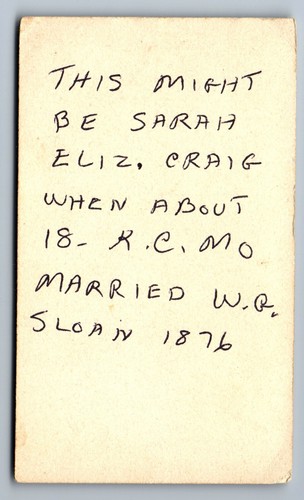 THIS MIGHT
BE SARAH
ELIZ. CRAIG
WHEN ABOUT
18- K.C. MO
MARRIED W.R.
SLOAN 1876